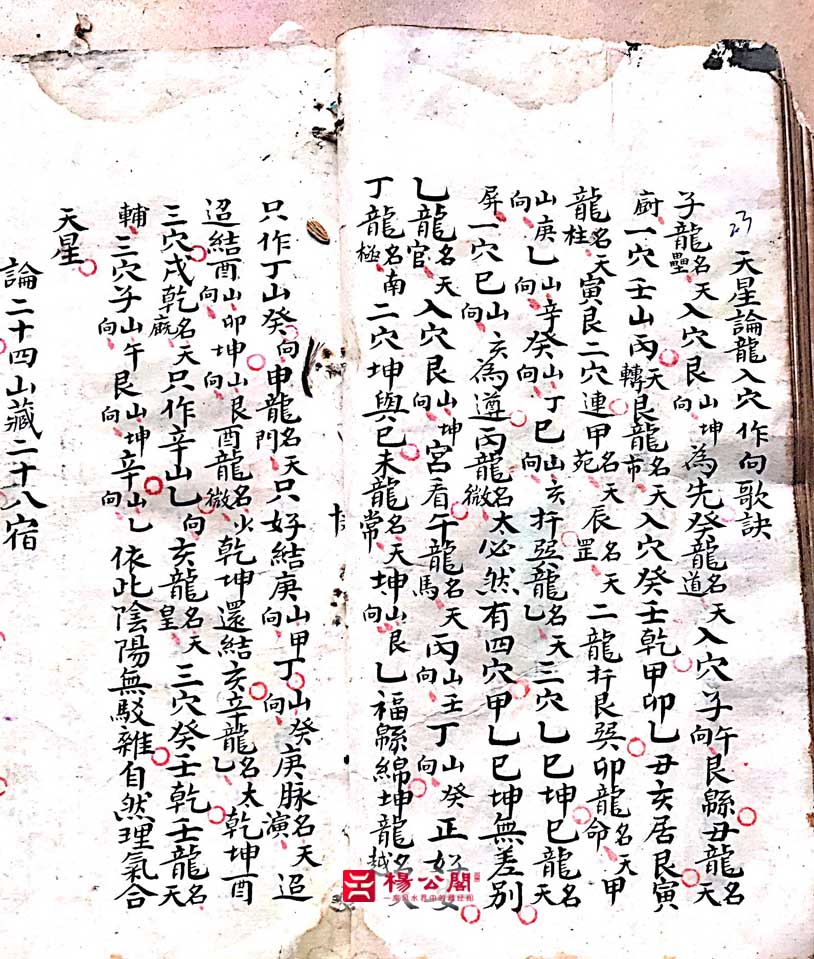 23 天星論龍入穴作向歌訣
子龍名天壘入穴艮山坤向為先癸龍名天道入穴子午向艮緜丑龍名天
厨一穴壬山丙天轉艮龍名天市入穴癸壬乾甲卯乙丑亥居艮寅
龍名天柱寅艮二穴連甲名天苑辰名天罡二龍扦艮巽卯龍名天命甲
山庚向乙山辛向癸山丁向巳山亥向扦巽龍名天乙三穴乙巳坤巳龍名天
屏一穴巳山亥向為遵丙龍名太微必然有四穴甲乙巳坤無差別
乙龍名天官入穴艮山坤向宮看午龍名天馬丙山壬向丁山癸向正好
丁龍名南極二穴坤與巳未龍名天常坤山艮向乙福緜綿坤龍名越
只作丁山癸向申龍名天門只好結庚山甲向丁山癸向庚脉名天演迢
迢結酉山卯向坤山艮向酉龍名少微乾坤還結亥辛龍名太乙乾坤酉
三穴戌乾名天廐只作辛山乙向亥龍名天皇三穴癸壬乾壬龍名天
輔三穴子山午向艮山坤向辛山乙向依此陰陽無駁雜自然理氣合
天星
論二十四山藏二十八宿
楊公閣